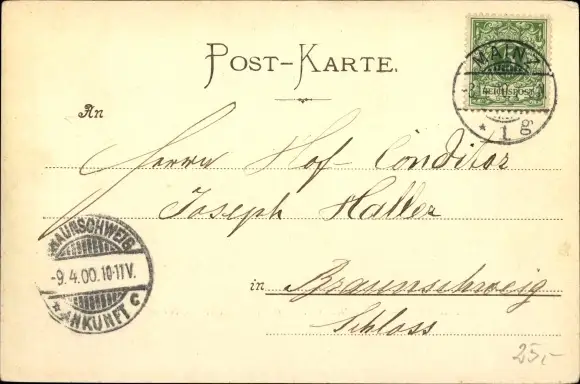 POST-KARTE.
REICHSPOST
MAINZ
1
gg
An
Herrn Hof-Conditor
Joseph Haller
BRAUNSCHWEIG
-9.4.00.10-11V.
* ANKUNFT C
in Braunschweig
Schloss
25,-